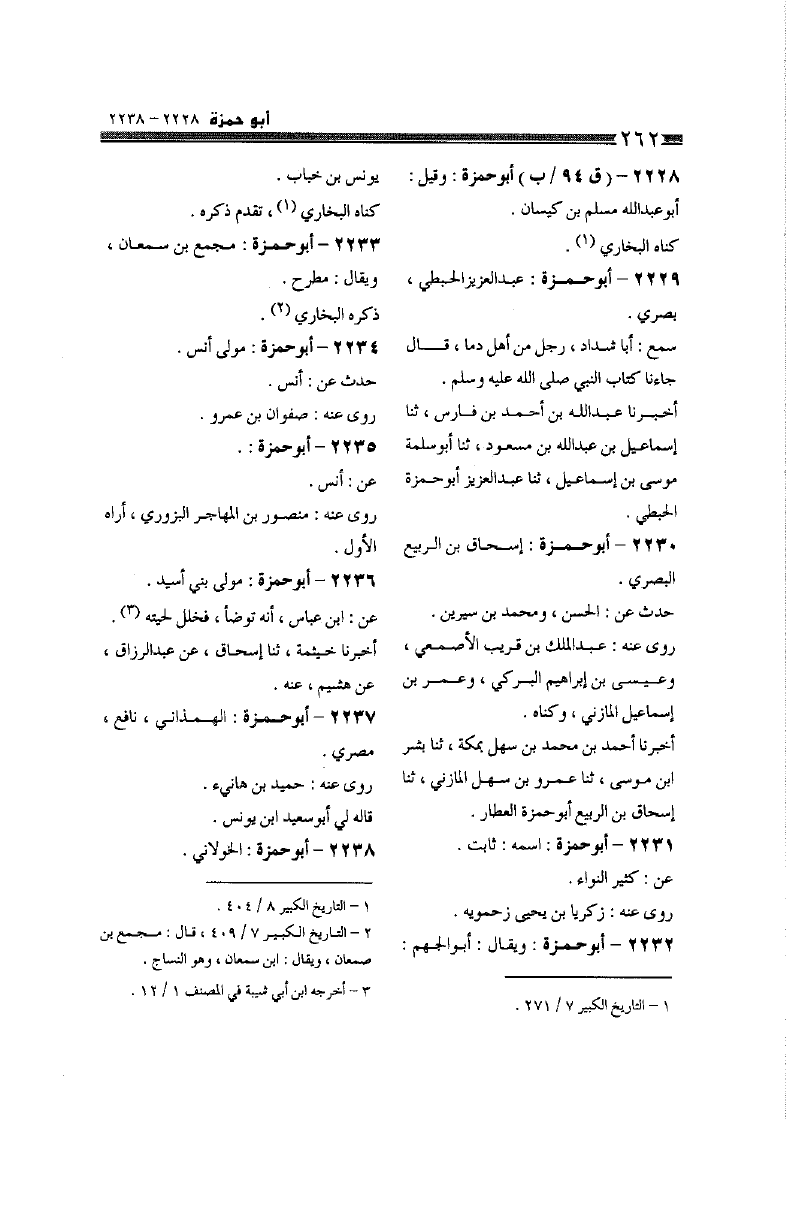 أبو حمزة ٢٢٢٨ – ٢٢٣٨
٢٦٢
٢٢٢٨ – ( ق ٩٤ / ب ) أبوحمزة : وقيل :
أبوعبدالله مسلم بن كيسان .
كناه البخاري (١) .
٢٢٢٩ – أبوحمزة : عبدالعزيزالحبطي ،
بصري .
سمع : أبا شداد ، رجل من أهل دما ، قال
جاءنا كتاب النبي صلى الله عليه وسلم .
أخبرنا عبدالله بن أحمد بن فارس ، ثنا
إسماعيل بن عبدالله بن مسعود ، ثنا أبوسلمة
موسى بن إسماعيل ، ثنا عبدالعزيز أبوحمزة
الحبطي .
٢٢٣٠ – أبوحمزة : إسحاق بن الربيع
البصري .
حدث عن : الحسن ، ومحمد بن سيرين .
روى عنه : عبدالملك بن قريب الأصمعي ،
وعيسى بن إبراهيم البركي ، وعمر بن
إسماعيل المازني ، وكناه .
أخبرنا أحمد بن محمد بن سهل بمكة ، ثنا بشر
ابن موسى ، ثنا عمرو بن سهل المازني ، ثنا
إسحاق بن الربيع أبوحمزة العطار .
٢٢٣١ – أبوحمزة : اسمه : ثابت .
عن : كثير النواء .
روى عنه : زكريا بن يحيى زحمويه .
٢٢٣٢ – أبوحمزة : ويقال : أبوالجهم :
١ – التاريخ الكبير ٧ / ٢٧١ .
يونس بن خباب .
كناه البخاري (١) ، تقدم ذكره .
٢٢٣٣ – أبوحمزة : مجمع بن سمعان ،
ويقال : مطرح .
ذكره البخاري (٢) .
٢٢٣٤ – أبوحمزة : مولى أنس .
حدث عن : أنس .
روى عنه : صفوان بن عمرو .
٢٢٣٥ – أبوحمزة : .
عن : أنس .
روى عنه : منصور بن المهاجر البزوري ، أراه
الأول .
٢٢٣٦ – أبوحمزة : مولى بني أسيد .
عن : ابن عباس ، أنه توضأ ، فخلل لحيته (٣) .
أخبرنا خيثمة ، ثنا إسحاق ، عن عبدالرزاق ،
عن هشيم ، عنه .
٢٢٣٧ – أبوحمزة : الهمذاني ، نافع ،
مصري .
روى عنه : حميد بن هانيء .
قاله لي أبوسعيد ابن يونس .
٢٢٣٨ – أبوحمزة : الخولاني .
١ – التاريخ الكبير ٨ / ٤٠٤ .
٢ – التاريخ الكبير ٧ / ٤٠٩ ، قال : مجمع بن
صمعان ، ويقال : ابن سمعان ، وهو النساج .
٣ – أخرجه ابن أبي شيبة في المصنف ١ / ١٢ .